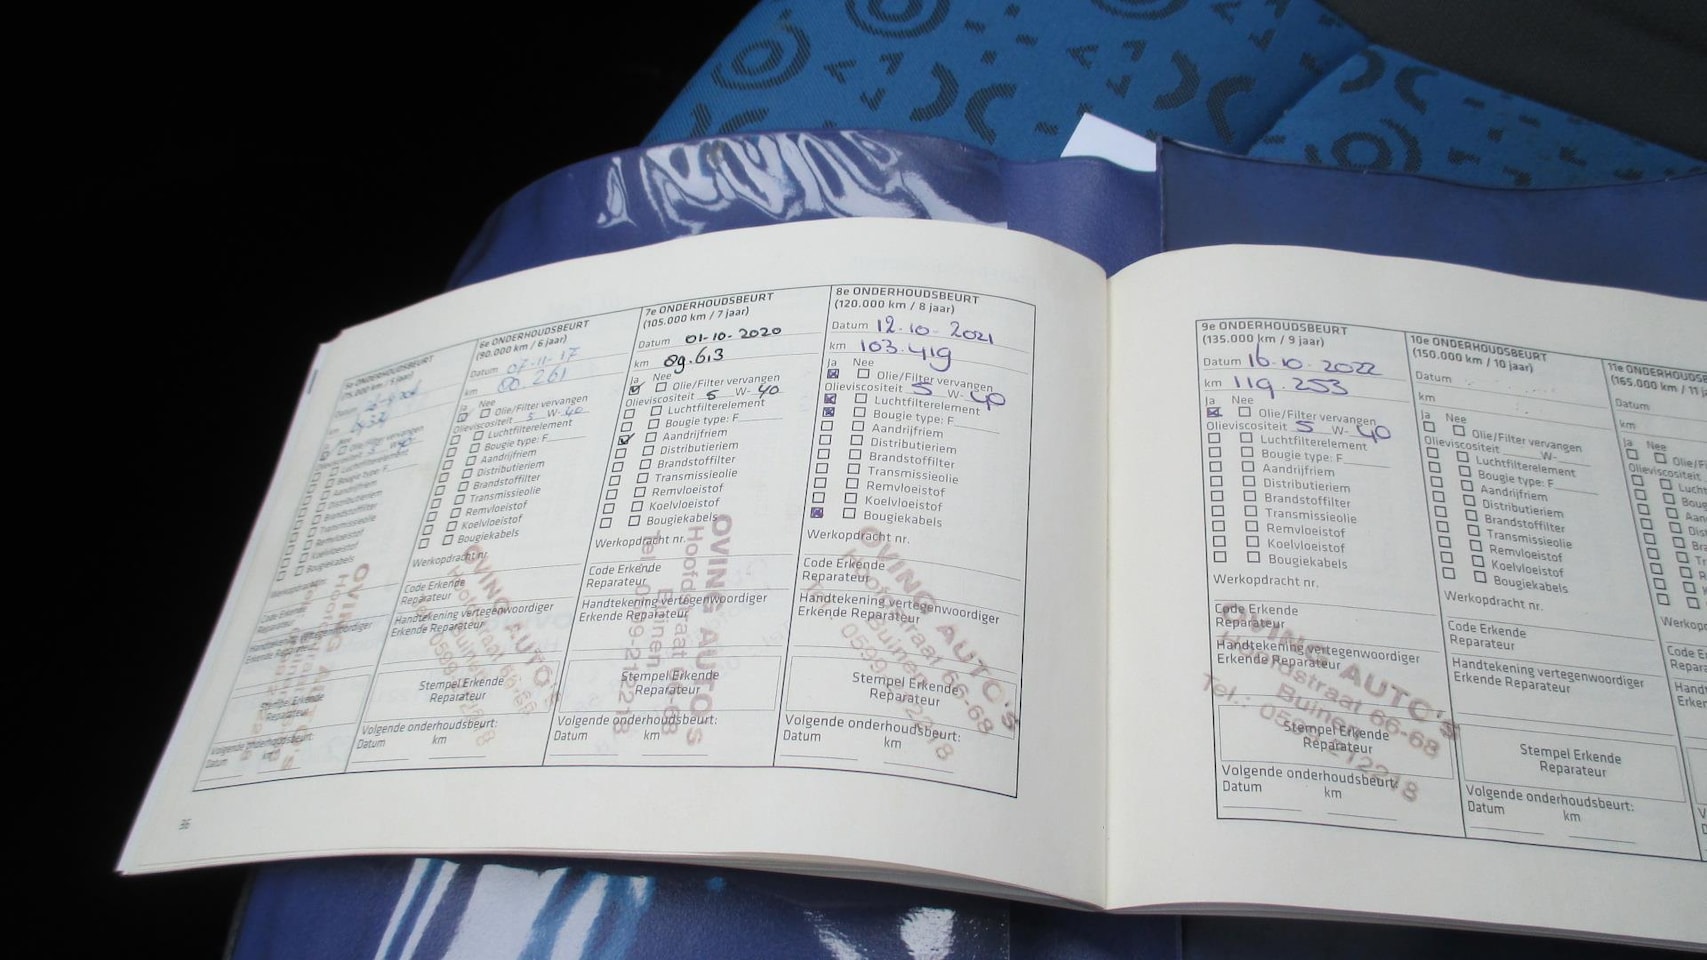 5e ONDERHOUDSBEURT
(75.000 km / 5 jaar)
Datum
km
Ja Nee
Olie/Filter vervangen
Olieviscositeit 5 W-40
Luchtfilterelement
Bougie type: F
Aandrijfriem
Distributieriem
Brandstoffilter
Transmissieolie
Remvloeistof
Koelvloeistof
Bougiekabels
Werkopdracht nr.
Code Erkende
Reparateur
Handtekening vertegenwoordiger
Erkende Reparateur
Stempel Erkende
Reparateur
Volgende onderhoudsbeurt:
Datum km
6e ONDERHOUDSBEURT
(90.000 km / 6 jaar)
Datum 07-11-17
km 80.261
Ja Nee
Olie/Filter vervangen
Olieviscositeit 5 W-40
Luchtfilterelement
Bougie type: F
Aandrijfriem
Distributieriem
Brandstoffilter
Transmissieolie
Remvloeistof
Koelvloeistof
Bougiekabels
Werkopdracht nr.
Code Erkende
Reparateur
Handtekening vertegenwoordiger
Erkende Reparateur
OVING AUTO'S
Hoofdstraat 66-68
Stempel Erkende
Reparateur
Volgende onderhoudsbeurt:
Datum km
7e ONDERHOUDSBEURT
(105.000 km / 7 jaar)
Datum 01-10-2020
km 89.613
Ja Nee
Olie/Filter vervangen
Olieviscositeit 5 W-40
Luchtfilterelement
Bougie type: F
Aandrijfriem
Distributieriem
Brandstoffilter
Transmissieolie
Remvloeistof
Koelvloeistof
Bougiekabels
Werkopdracht nr.
Code Erkende
Reparateur
Handtekening vertegenwoordiger
Erkende Reparateur
OVING AUTO'S
Hoofdstraat 66-68
Buinen
Tel.: 0599-212218
Stempel Erkende
Reparateur
Volgende onderhoudsbeurt:
Datum km
8e ONDERHOUDSBEURT
(120.000 km / 8 jaar)
Datum 12-10-2021
km 103.419
Ja Nee
Olie/Filter vervangen
Olieviscositeit 5 W-40
Luchtfilterelement
Bougie type: F
Aandrijfriem
Distributieriem
Brandstoffilter
Transmissieolie
Remvloeistof
Koelvloeistof
Bougiekabels
Werkopdracht nr.
Code Erkende
Reparateur
Handtekening vertegenwoordiger
Erkende Reparateur
OVING AUTO'S
Hoofdstraat 66-68
Buinen
0599-212218
Stempel Erkende
Reparateur
Volgende onderhoudsbeurt:
Datum km
36
9e ONDERHOUDSBEURT
(135.000 km / 9 jaar)
Datum 16-10-2022
km 119.253
Ja Nee
Olie/Filter vervangen
Olieviscositeit 5 W-40
Luchtfilterelement
Bougie type: F
Aandrijfriem
Distributieriem
Brandstoffilter
Transmissieolie
Remvloeistof
Koelvloeistof
Bougiekabels
Werkopdracht nr.
Code Erkende
Reparateur
Handtekening vertegenwoordiger
Erkende Reparateur
OVING AUTO'S
Hoofdstraat 66-68
Buinen
Tel.: 0599-212218
Stempel Erkende
Reparateur
Volgende onderhoudsbeurt:
Datum km
10e ONDERHOUDSBEURT
(150.000 km / 10 jaar)
Datum
km
Ja Nee
Olie/Filter vervangen
Olieviscositeit W-
Luchtfilterelement
Bougie type: F
Aandrijfriem
Distributieriem
Brandstoffilter
Transmissieolie
Remvloeistof
Koelvloeistof
Bougiekabels
Werkopdracht nr.
Code Erkende
Reparateur
Handtekening vertegenwoordiger
Erkende Reparateur
Stempel Erkende
Reparateur
Volgende onderhoudsbeurt:
Datum km
11e ONDERHOUDSB
(165.000 km / 11 j
Datum
km
Ja Nee
Olie/Fi
Olieviscositeit
Lucht
Boug
Aan
Dist
Bra
Tr
Re
Werkop
Code E
Repar
Handt
Erken